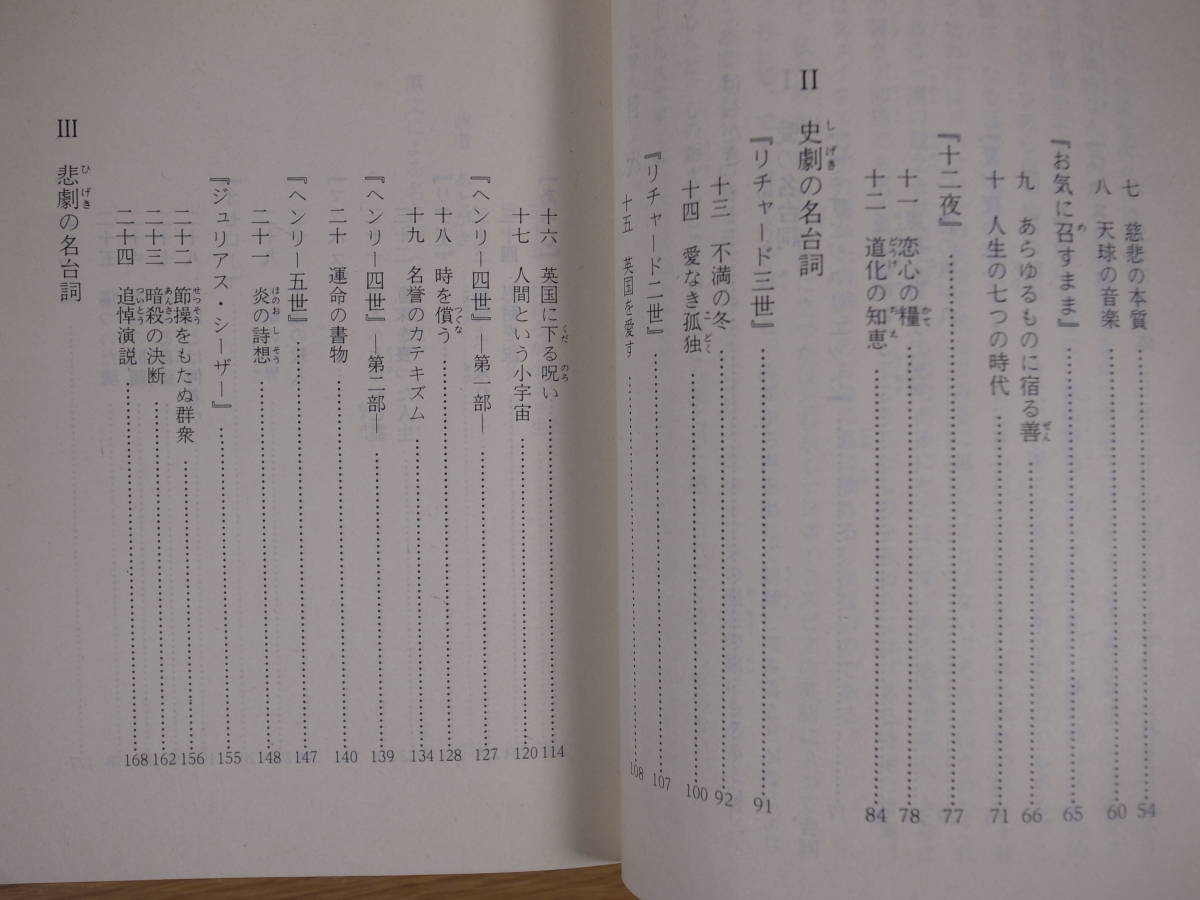 七 慈悲の本質……54
八 天球の音楽……60
『お気に召すまま』……65
九 あらゆるものに宿る善……66
十 人生の七つの時代……71
『十二夜』……77
十一 恋心の糧……78
十二 道化の知恵……84
II 史劇の名台詞
『リチャード三世』……91
十三 不満の冬……92
十四 愛なき孤独……100
『リチャード二世』……107
十五 英国を愛す……108
十六 英国に下る呪い……114
十七 人間という小宇宙……120
『ヘンリー四世』―第一部―……127
十八 時を償う……128
十九 名誉のカテキズム……134
『ヘンリー四世』―第二部―……139
二十 運命の書物……140
『ヘンリー五世』……147
二十一 炎の詩想……148
『ジュリアス・シーザー』……155
二十二 節操をもたぬ群衆……156
二十三 暗殺の決断……162
二十四 追悼演説……168
III 悲劇の名台詞